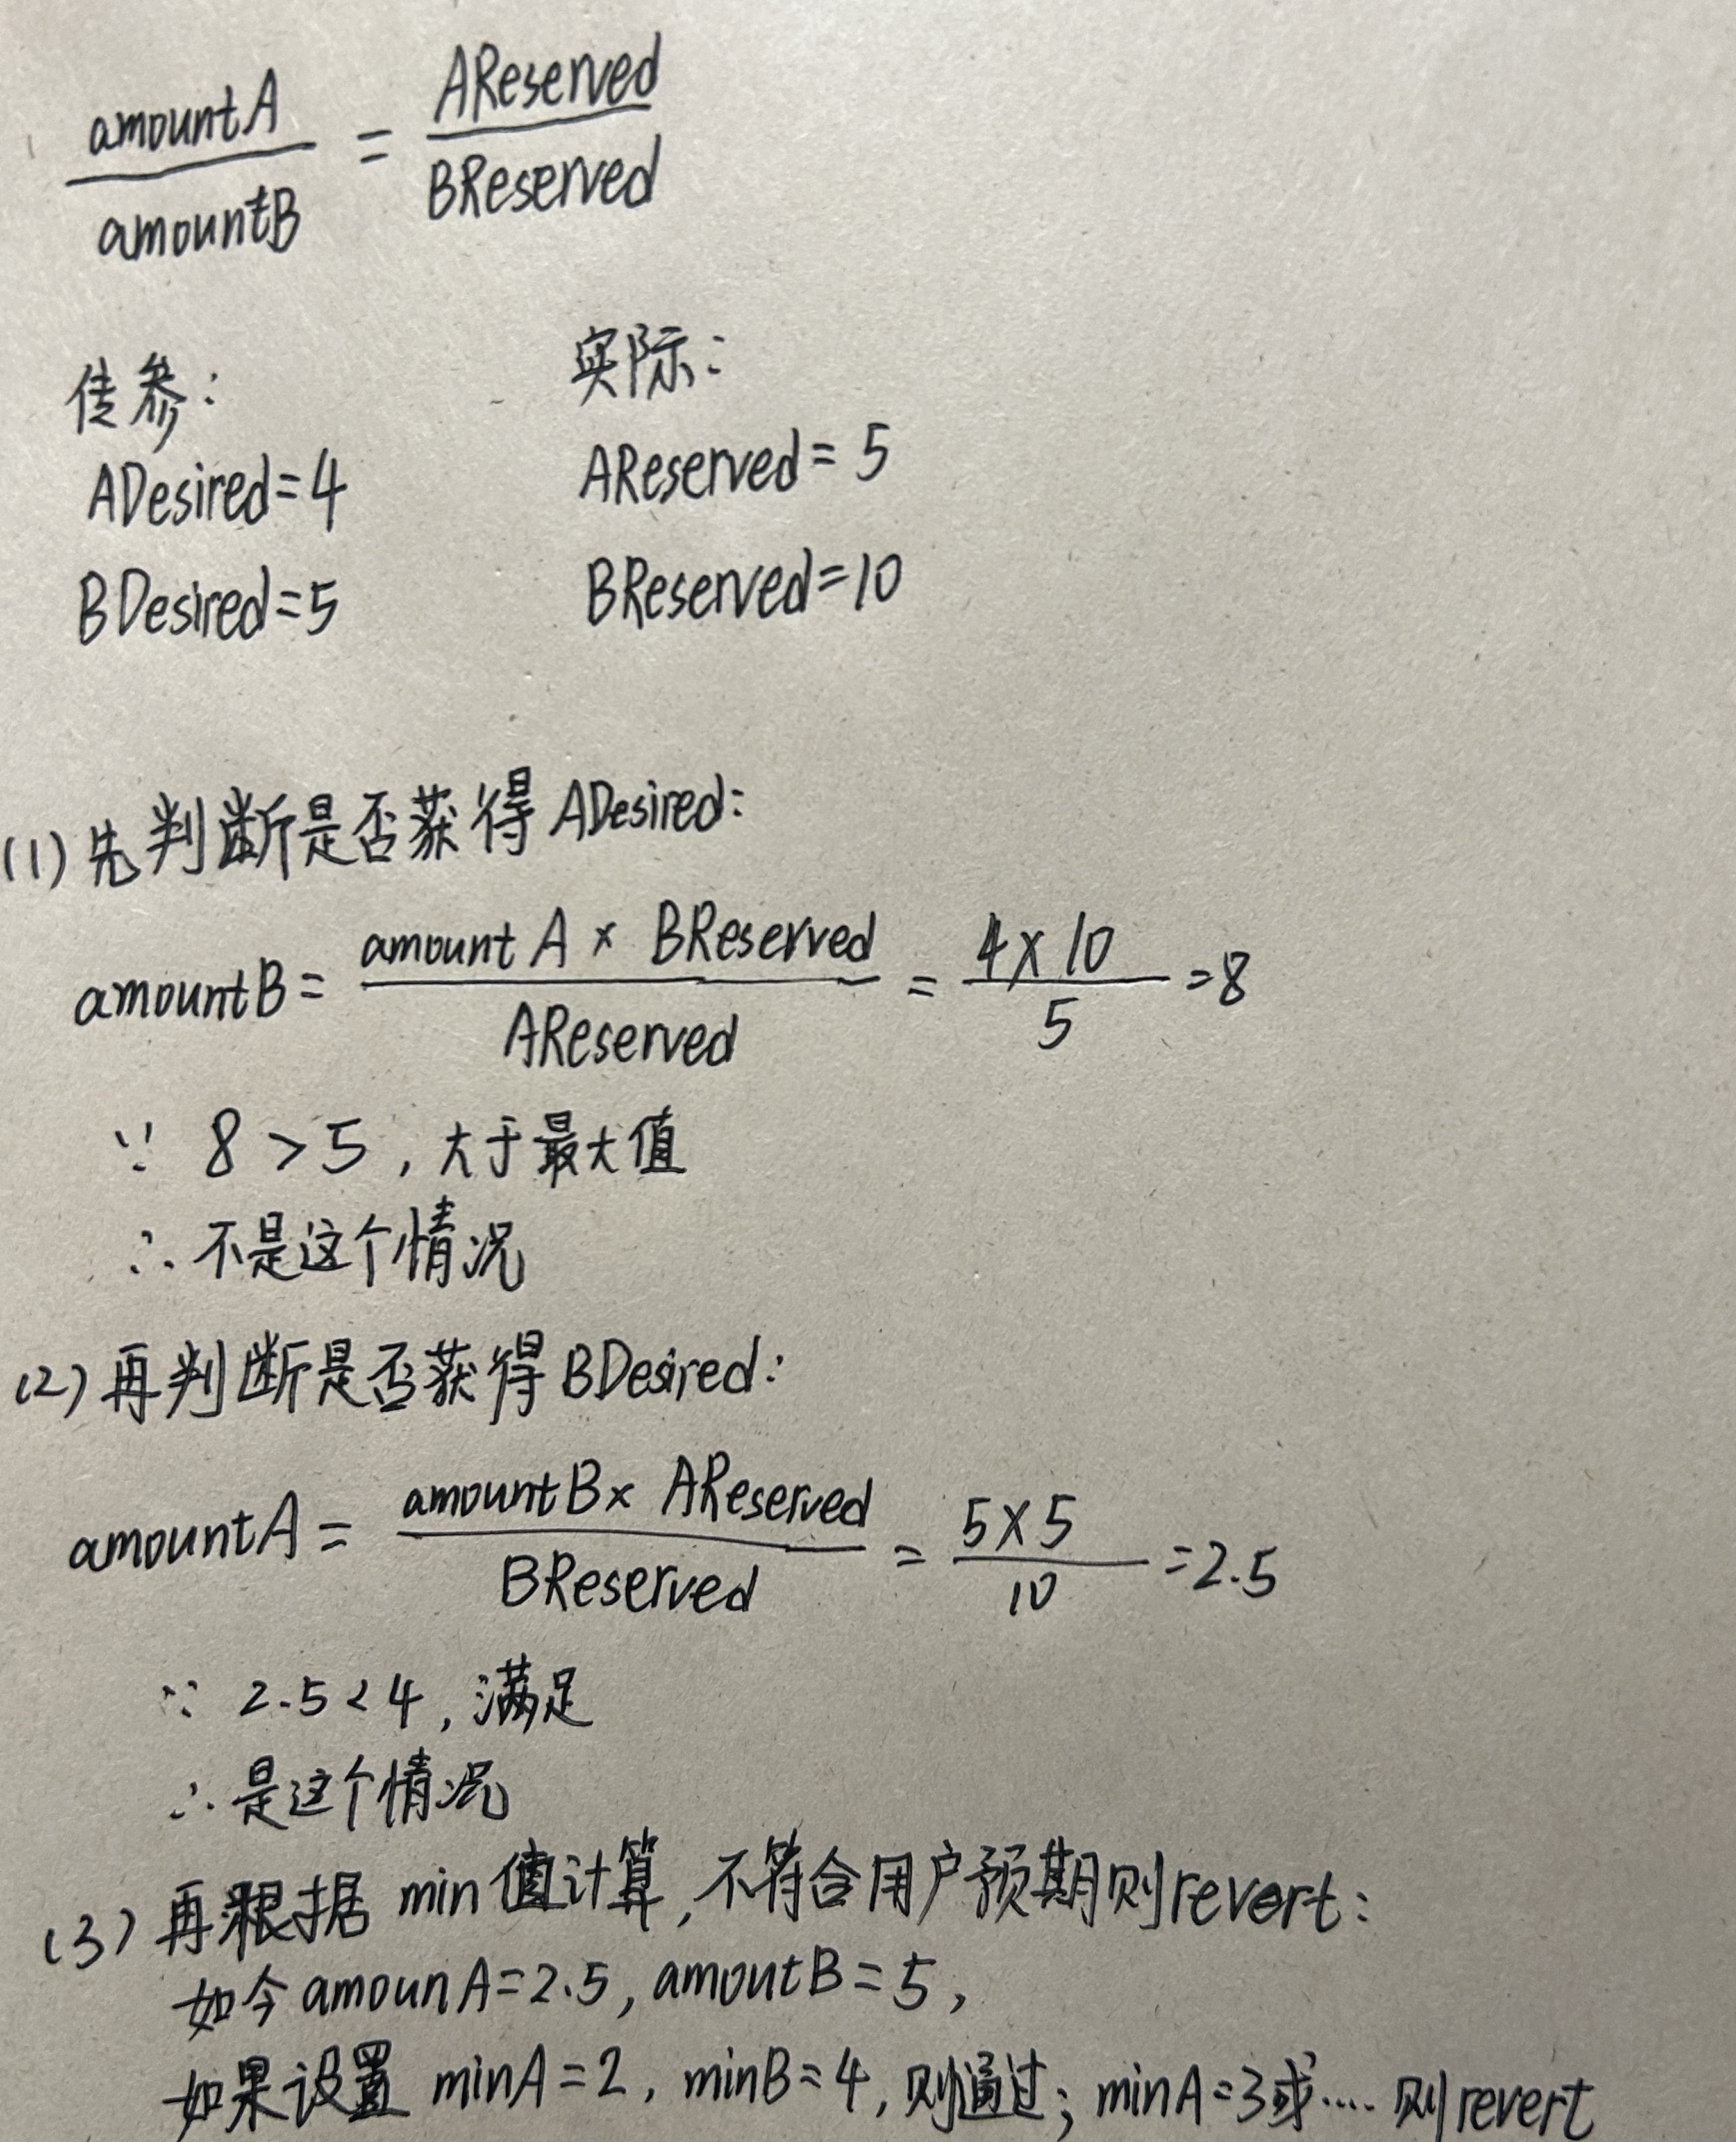 amountA / amountB = AReserved / BReserved
传参： 实际：
ADesired=4 AReserved=5
BDesired=5 BReserved=10
(1) 先判断是否获得ADesired:
amountB = amountA × BReserved / AReserved = 4×10 / 5 = 8
∵ 8 > 5, 大于最大值
∴ 不是这个情况
(2) 再判断是否获得BDesired:
amountA = amountB× AReserved / BReserved = 5×5 / 10 = 2.5
∵ 2.5<4, 满足
∴ 是这个情况
(3) 再根据 min值计算, 不符合用户预期则revert:
如今amounA=2.5, amoutB=5,
如果设置 minA=2, minB=4, 则通过; minA=3或.... 则revert